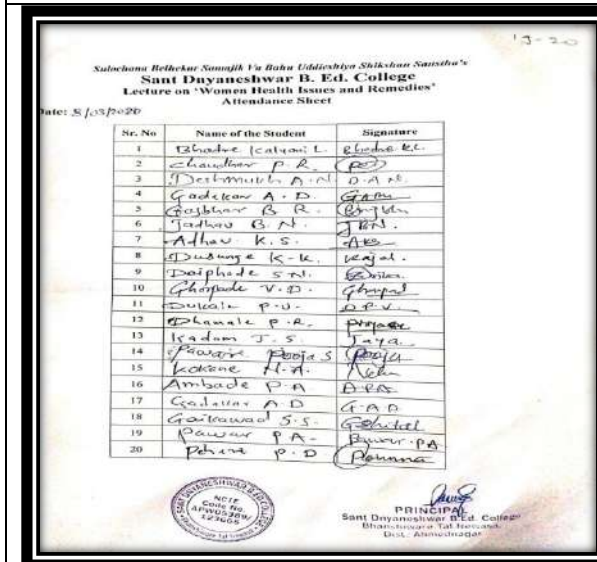 19-20
Sulochana Belhekar Samajik Va Bahu Uddieshiya Shikshan Sanstha's
Sant Dnyaneshwar B. Ed. College
Lecture on 'Women Health Issues and Remedies'
Attendance Sheet
Date: 8/03/2020
Sr. No Name of the Student Signature
1 Bhadre Kalyani L. Bhadre K.L.
2 Chaudhar P. R.
3 Deshmukh A. N. D. A. N.
4 Gadekar A. D.
5 Gajbhar B R.
6 Jadhav B. N. JBN.
7 Adhav K. S. AKS
8 Dusunge K-K. Kajal.
9 Daiphode S N.
10 Ghorpade V. D.
11 Dukale P. V. D. P. V.
12 Dhamale P. R.
13 Kadam J. S. Jaya
14 Pawar Pooja S Pooja
15 Kokane N. A.
16 Ambade P. A A. P. A.
17 Gadekar A. D G. A. D
18 Gaikawad S. S.
19 Pawar P A- Pawar. PA
20 P. D
SANT DNYANESHWAR B.ED. COLLEGE
NCTE
Code No.
APW05389/
123665
PRINCIPAL
Sant Dnyaneshwar B.Ed. College
Bhanshivara Tal. Newasa,
Dist. Ahmednagar